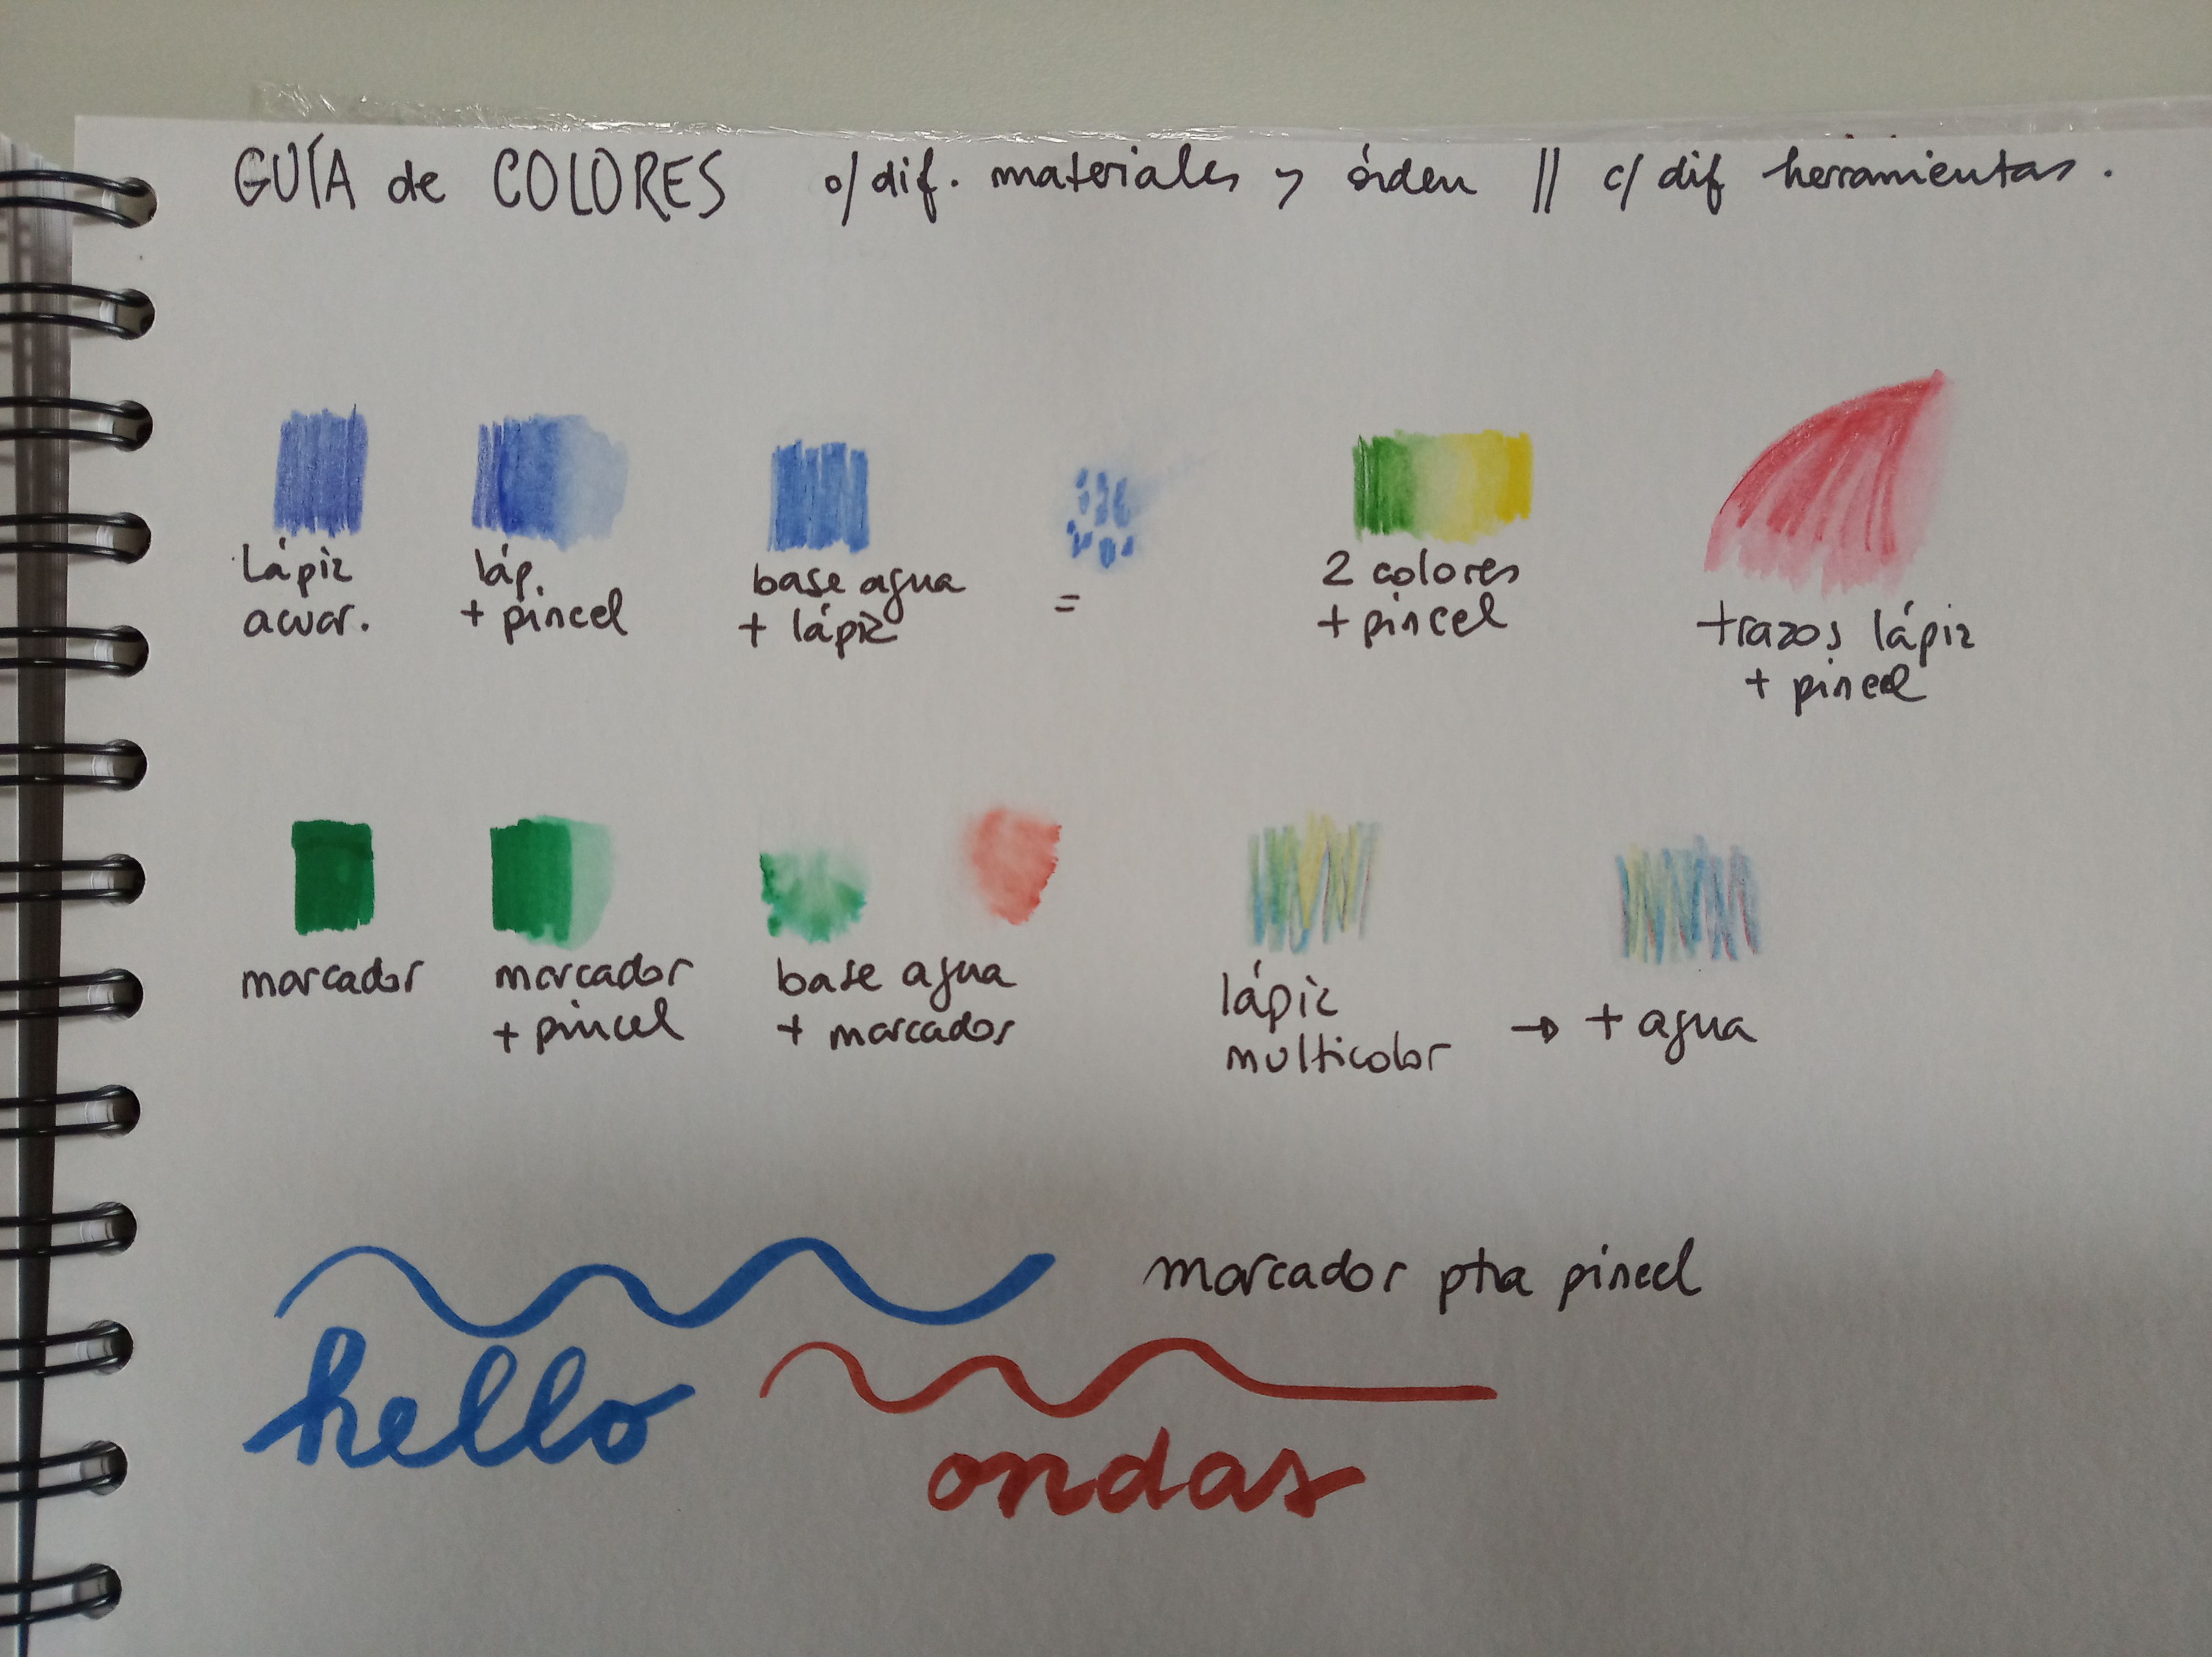 GUÍA de COLORES o/ dif. materiales y órden || c/ dif herramientas.
Lápiz
acuar.
láp.
+ pincel
base agua
+ lápiz
=
2 colores
+ pincel
trazos lápiz
+ pincel
marcador
marcador
+ pincel
base agua
+ marcador
lápiz
multicolor
→ + agua
marcador pta pincel
hello
ondas